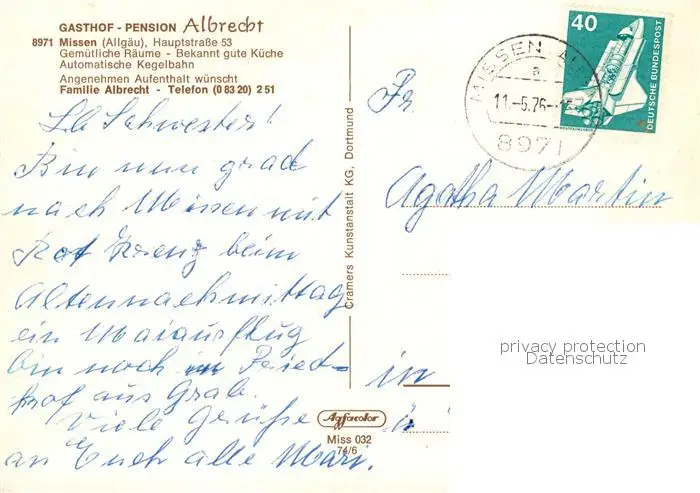 GASTHOF - PENSION Albrecht
8971 Missen (Allgäu), Hauptstraße 53
Gemütliche Räume - Bekannt gute Küche
Automatische Kegelbahn
Angenehmen Aufenthalt wünscht
Familie Albrecht - Telefon (0 83 20) 2 51
Lb Schwester!
Bin nun grad
nach Missen mit
Rot Kreuz beim
Altennachmittag
ein Maiausflug
bin noch in Fried-
hof aus Grab.
Viele Grüße
an Euch alle Mari.
Cramers Kunstanstalt KG, Dortmund
Agfacolor
Miss 032
74/6
40
DEUTSCHE BUNDESPOST
MISSEN
a
11.-5.76
8971
Fr.
Agatha Martin
in
privacy protection
Datenschutz